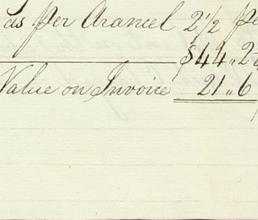 as per Arancel 2½ pe
$44,,2
Value on Invoice 21,,6